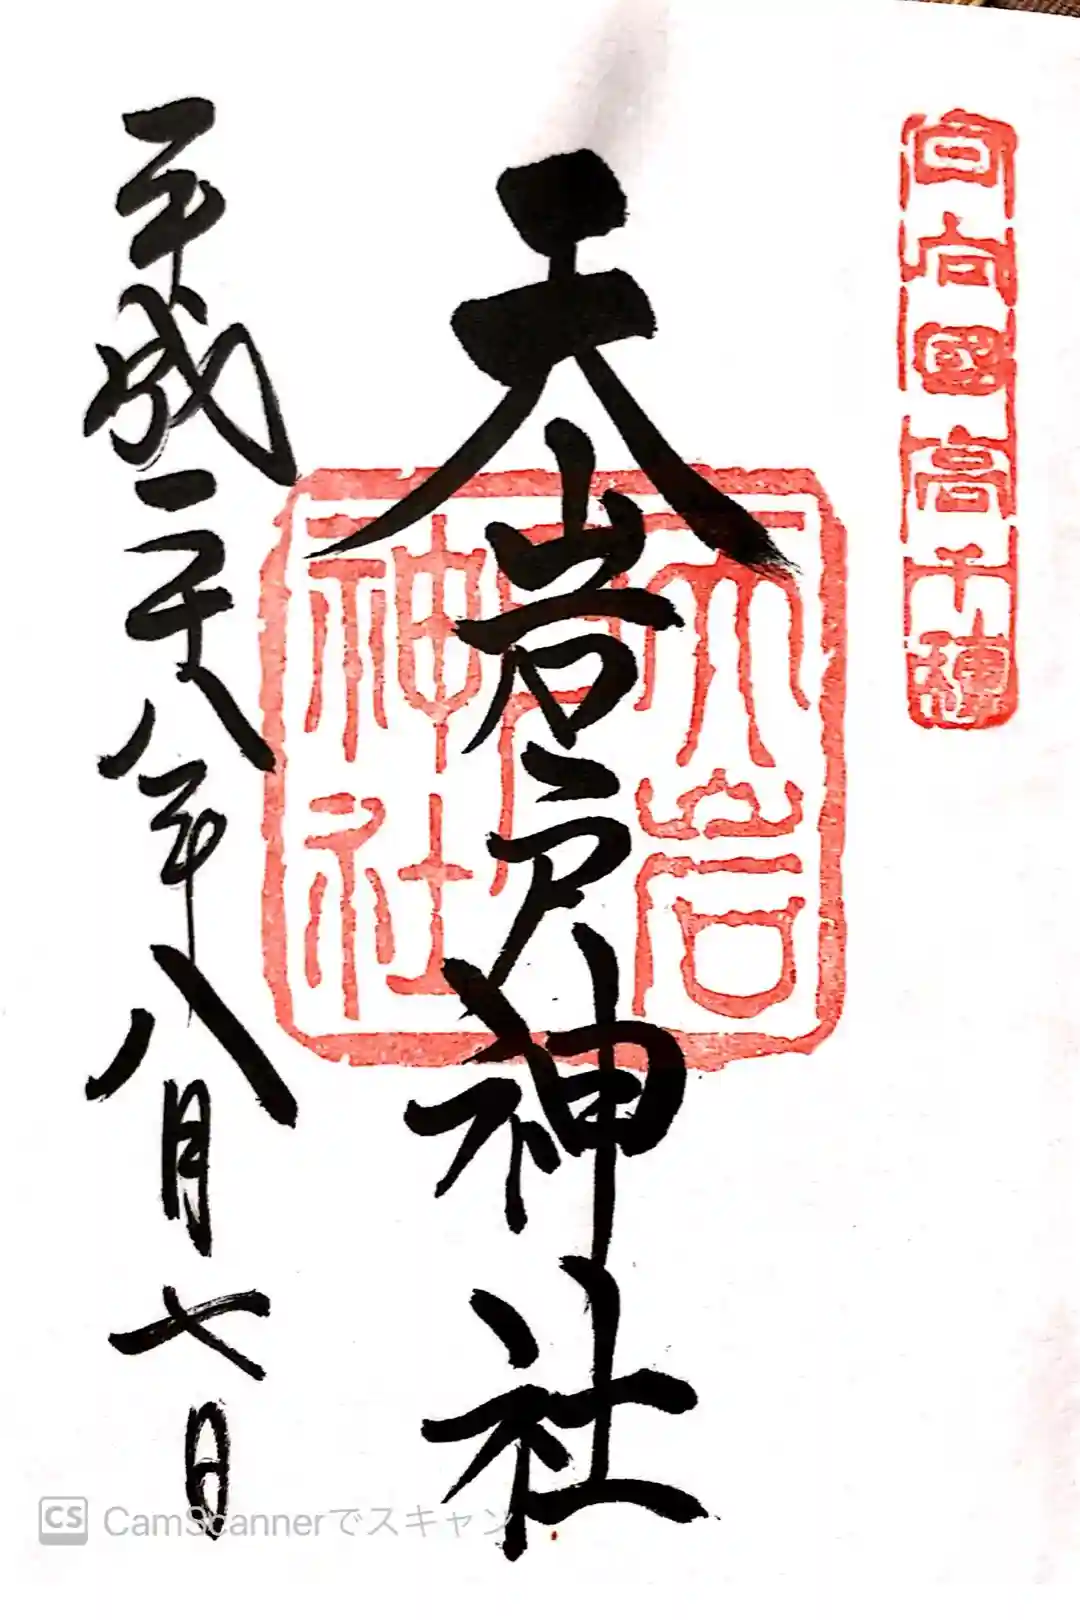 日向國高千穂
天岩戸神社
天岩
戸
神社
平成二十八年八月七日
CS CamScannerでスキャン